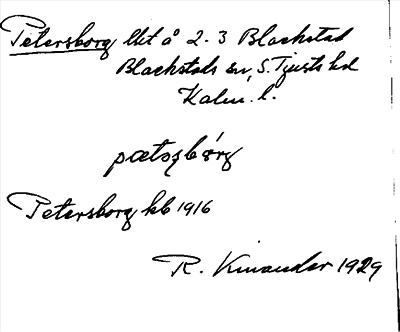 Petersborg lht å 2-3 Blackstad
Blackstads sn, S. Tjusts hd
Kalm. l.
Petersborg kb 1916
R. Kinander 1929